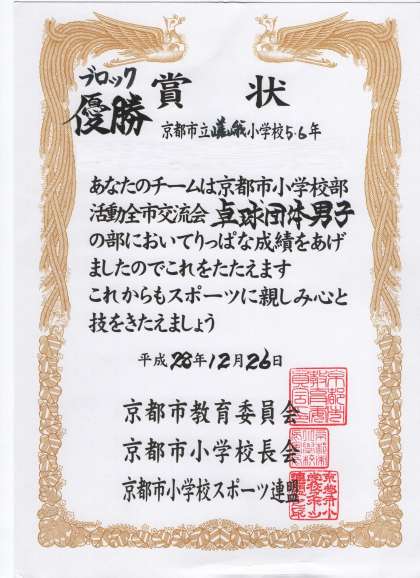 賞状
ブロック
優勝
京都市立嵯峨小学校5・6年
あなたのチームは京都市小学校部
活動全市交流会 卓球団体男子
の部においてりっぱな成績をあげ
ましたのでこれをたたえます
これからもスポーツに親しみ心と
技をきたえましょう
平成28年12月26日
京都市教育委員会
京都市小学校長会
京都市小学校スポーツ連盟